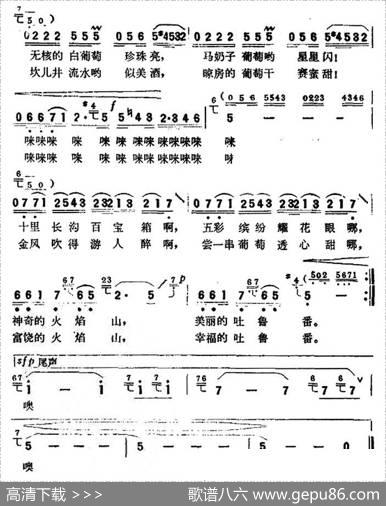 0222 555 555 5#4532 0222 555 555 5#4532
无核的 白葡萄 珍珠亮， 马奶子 葡萄哟 星星闪！
坎儿井 流水哟 似美酒， 晾房的 葡萄干 赛蜜甜！
(056 5543 0223 4346)
咪咪咪 咪 咪 咪咪咪咪咪咪 咪
咪咪咪 咪 咪 咪咪咪咪咪咪 呀
0771 2543 2321 217 0771 2543 2321 217
十里 长沟 百宝 箱啊， 五彩 缤纷 耀花 眼哪，
金风 吹得 游人 醉啊， 尝一串葡萄 透心 甜哪，
神奇的火焰 山， 美丽的吐鲁 番。
富饶的火焰 山， 幸福的吐鲁 番。
sfp 尾声
噢
噢
高清下载 >>> 歌谱八六 www.gepu86.com